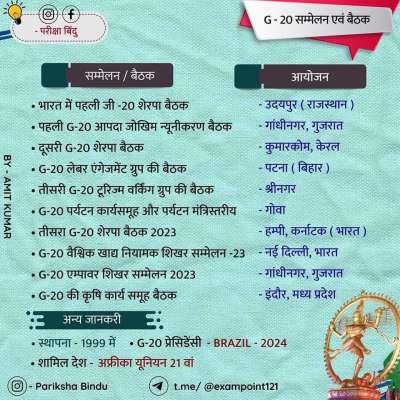 - परीक्षा बिंदु
G - 20 सम्मेलन एवं बैठक
सम्मेलन / बैठक
आयोजन
• भारत में पहली जी -20 शेरपा बैठक - उदयपुर ( राजस्थान )
• पहली G-20 आपदा जोखिम न्यूनीकरण बैठक - गांधीनगर, गुजरात
• दूसरी G-20 शेरपा बैठक - कुमारकोम, केरल
• G-20 लेबर एंगेजमेंट ग्रुप की बैठक - पटना ( बिहार )
• तीसरी G-20 टूरिज्म वर्किंग ग्रुप की बैठक - श्रीनगर
• G-20 पर्यटन कार्यसमूह और पर्यटन मंत्रिस्तरीय - गोवा
• तीसरा G-20 शेरपा बैठक 2023 - हम्पी, कर्नाटक ( भारत )
• G-20 वैश्विक खाद्य नियामक शिखर सम्मेलन -23 - नई दिल्ली, भारत
• G-20 एम्पावर शिखर सम्मेलन 2023 - गांधीनगर, गुजरात
• G-20 की कृषि कार्य समूह बैठक - इंदौर, मध्य प्रदेश
BY - AMIT KUMAR
अन्य जानकरी
• स्थापना - 1999 में • G-20 प्रेसिडेंसी - BRAZIL - 2024
• शामिल देश - अफ्रीका यूनियन 21 वां
- Pariksha Bindu
t.me/ @exampoint121